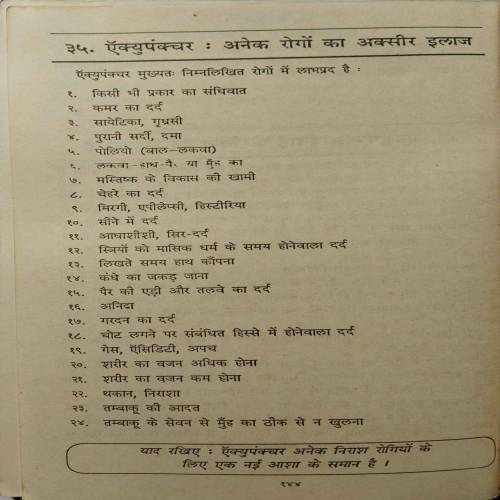 ३५. ऍक्युपंक्चर : अनेक रोगों का अक्सीर इलाज
ऍक्युपंक्चर मुख्यतः निम्नलिखित रोगों में लाभप्रद है :
१. किसी भी प्रकार का संधिवात
२. कमर का दर्द
३. सायेटिका, गृध्रसी
४. पुरानी सर्दी, दमा
५. पोलियो (बाल-लकवा)
६. लकवा-हाथ-पैर या मुँह का
७. मस्तिष्क के विकास की खामी
८. चेहरे का दर्द
९. मिरगी, एपीलेप्सी, हिस्टीरिया
१०. सीने में दर्द
११. आधाशीशी, सिर-दर्द
१२. स्त्रियों को मासिक धर्म के समय होनेवाला दर्द
१३. लिखते समय हाथ काँपना
१४. कंधे का जकड़ जाना
१५. पैर की एड़ी और तलवे का दर्द
१६. अनिद्रा
१७. गरदन का दर्द
१८. चोट लगने पर संबंधित हिस्से में होनेवाला दर्द
१९. गेस, ऍसिडिटी, अपच
२०. शरीर का वजन अधिक होना
२१. शरीर का वजन कम होना
२२. थकान, निराशा
२३. तम्बाकू की आदत
२४. तम्बाकू के सेवन से मुँह का ठीक से न खुलना
याद रखिए : ऍक्युपंक्चर अनेक निराश रोगियों के
लिए एक नई आशा के समान है ।
१४४